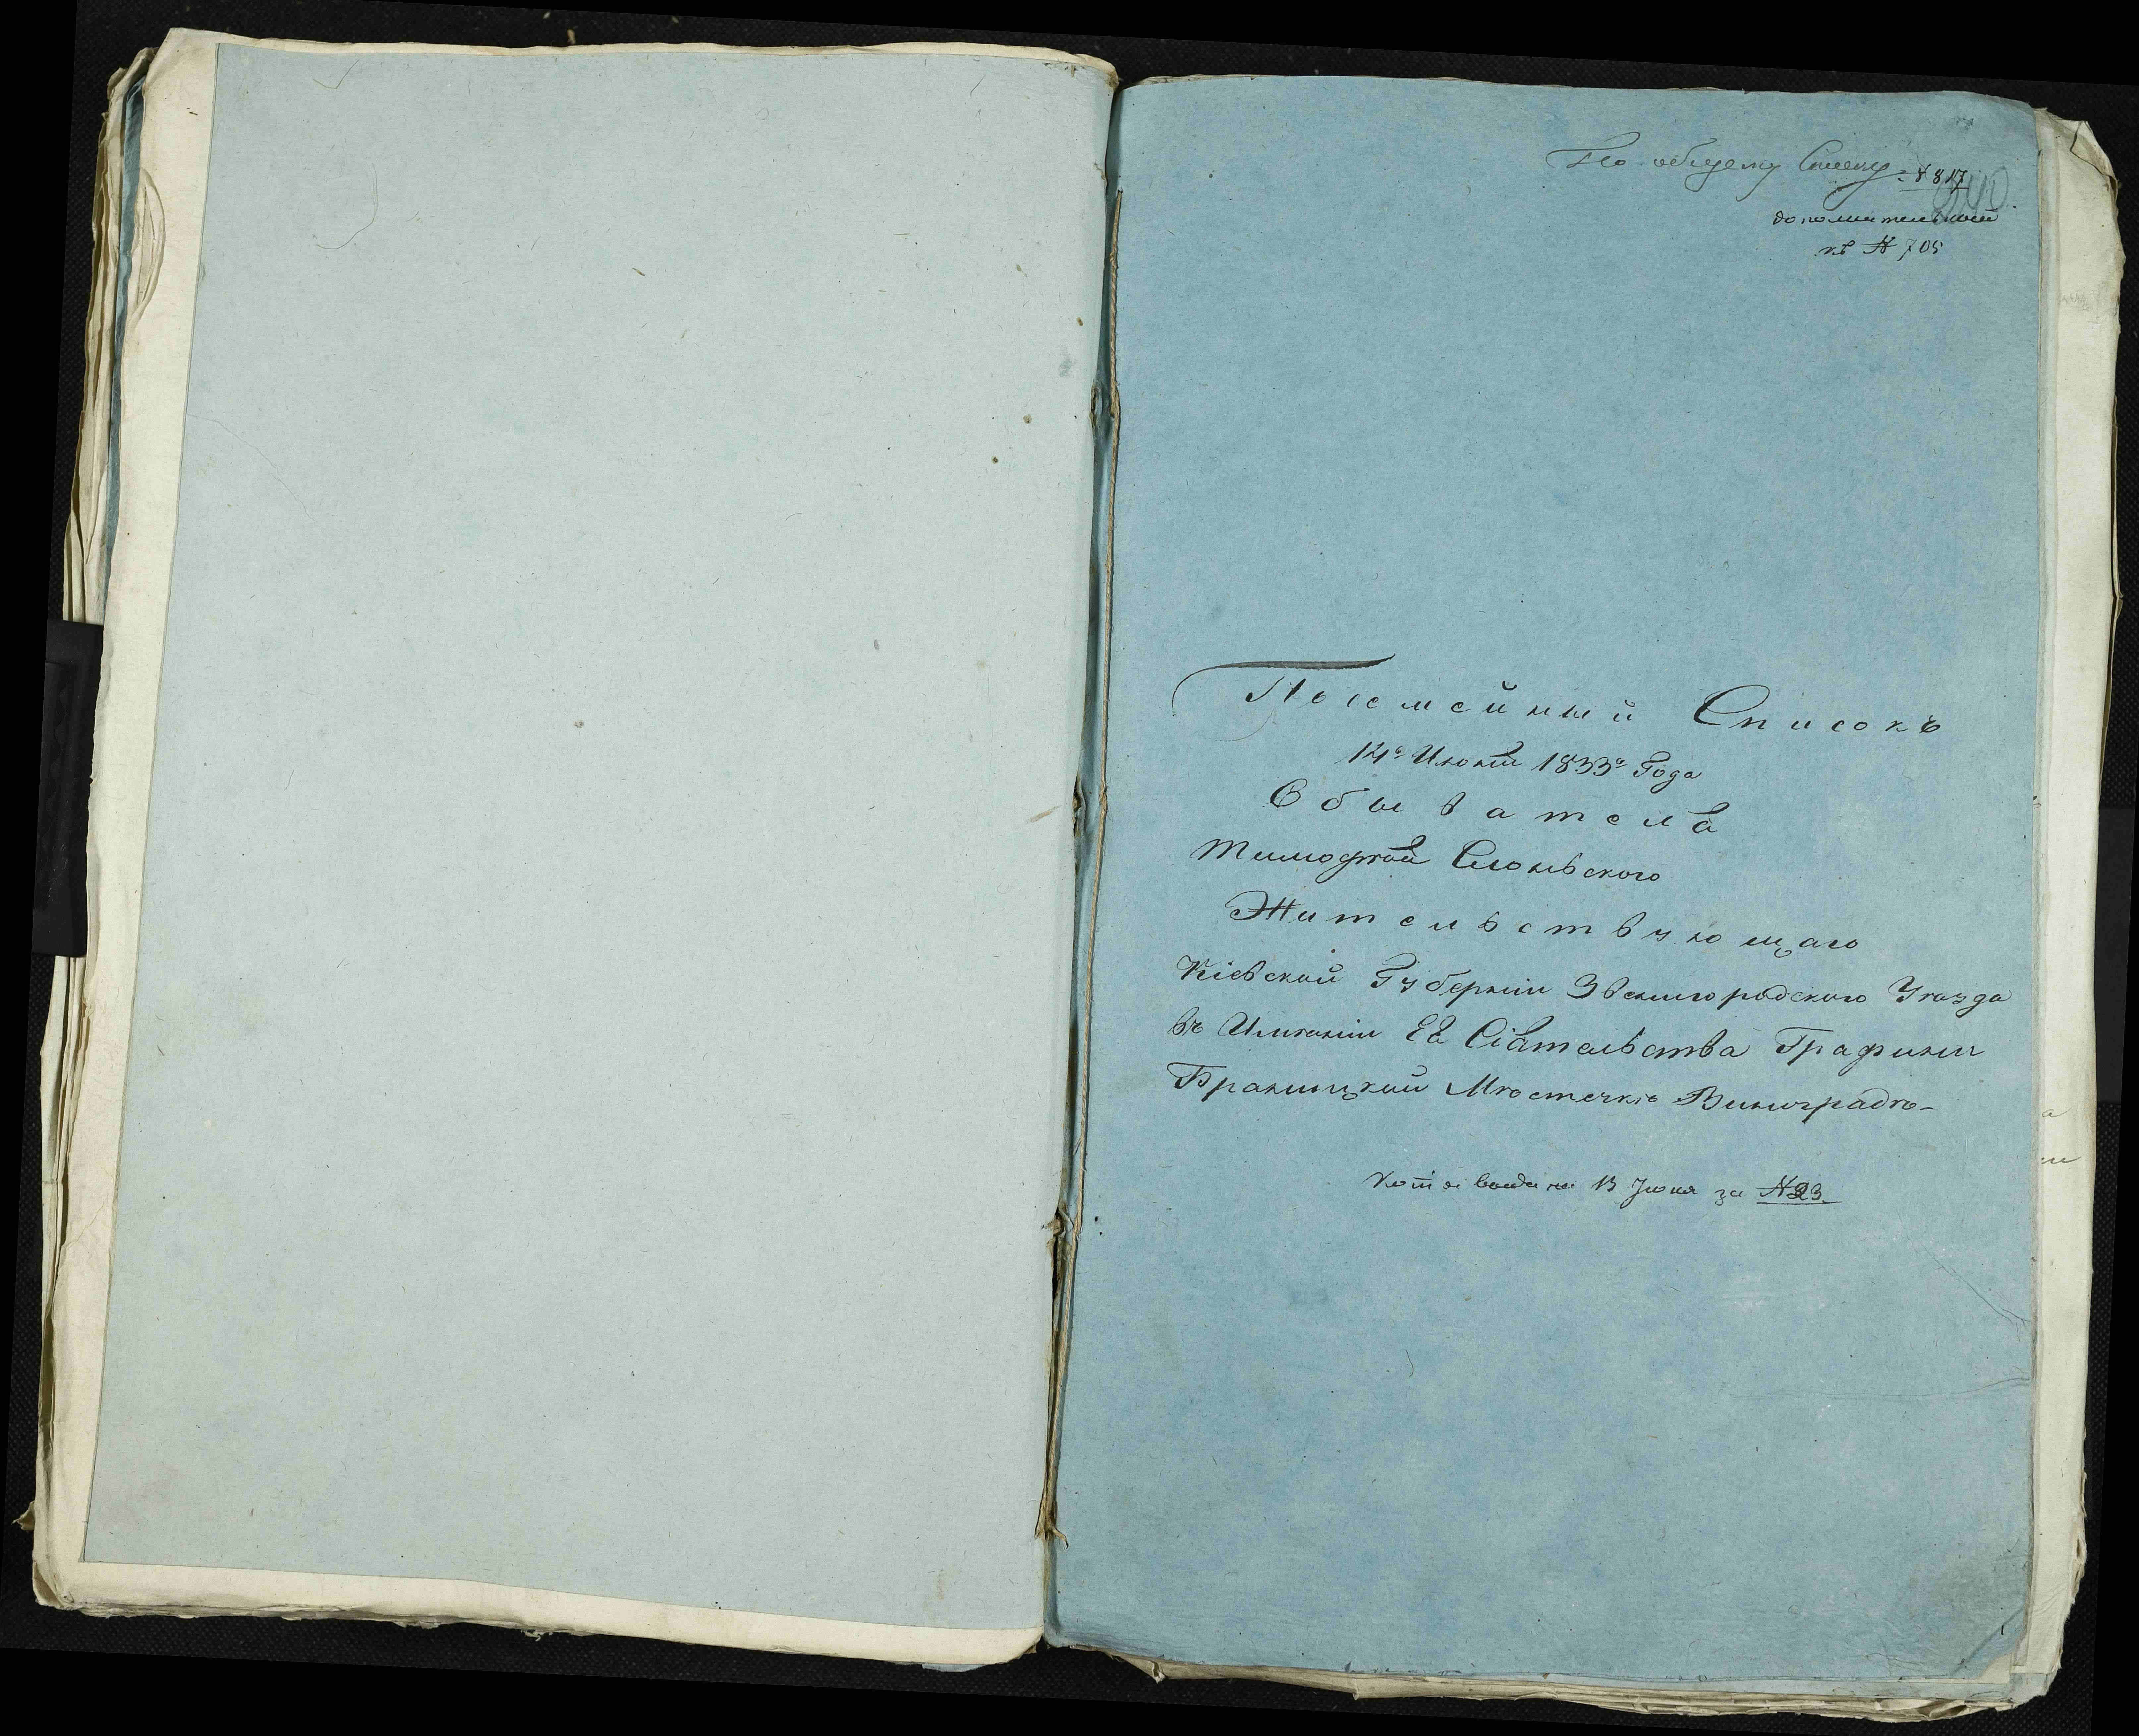 По общему Списку №817
240
дополнительный
къ № 705
Посемейный Списокъ
14го Июня 1833го Года
Обывателя
Тимофѣя Слоньского
Жительствующаго
Кіевской Губерніи Звенигородского Уѣзда
въ Имѣніи Её Сіятельства Графини
Браницкой Мѣстечкѣ Виноградѣ
выдана 13 Июня за №